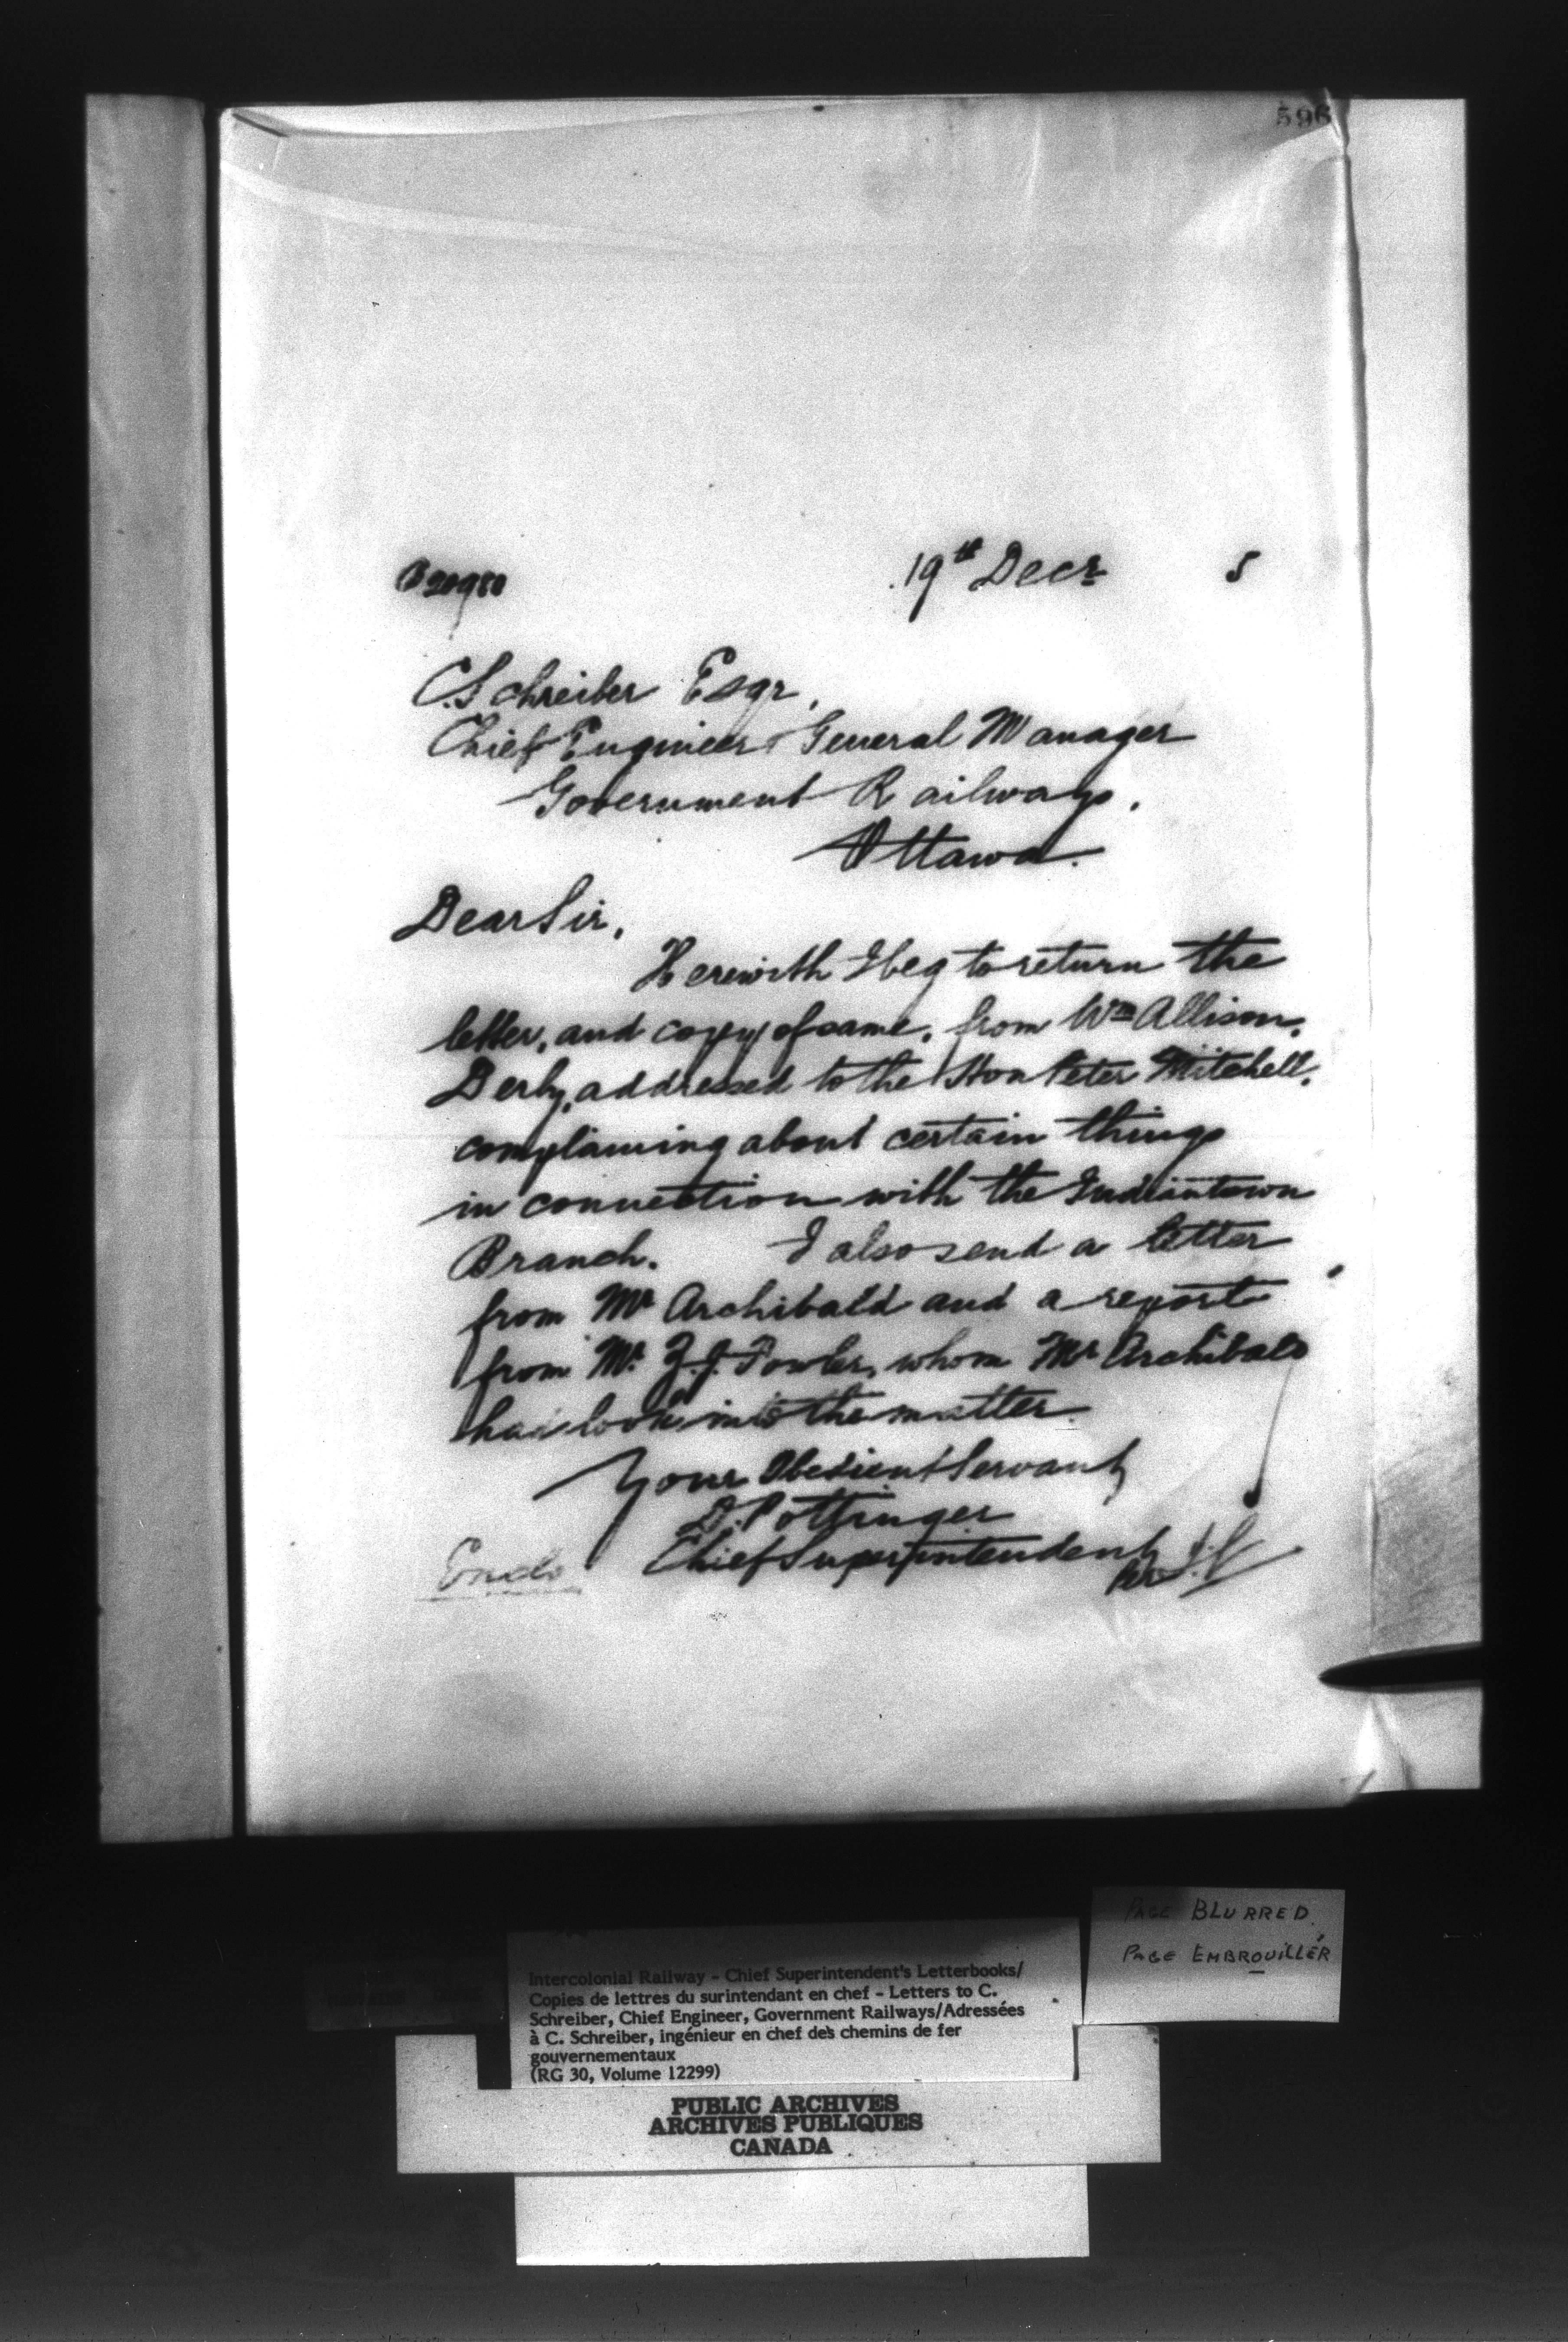 596
B 20980
19th Decr 5
C. Schreiber Esqr,
Chief Engineer & General Manager
Government Railways.
Ottawa.
Dear Sir,
Herewith I beg to return the
letter, and copy of same, from Wm Allison,
Derby, addressed to the Hon Peter Mitchell,
complaining about certain things
in connection with the Indiantown
Branch. I also send a letter
from Mr Archibald and a report
from Mr. Z. J. Fowler, whom Mr Archibald
had look into the matter.
Your Obedient Servant,
D. Pottinger
Chief Superintendent
Per
Enclo
PAGE BLURRED
PAGE EMBROUILLÉR
Intercolonial Railway - Chief Superintendent's Letterbooks/
Copies de lettres du surintendant en chef - Letters to C.
Schreiber, Chief Engineer, Government Railways/Adressées
à C. Schreiber, ingénieur en chef des chemins de fer
gouvernementaux
(RG 30, Volume 12299)
PUBLIC ARCHIVES
ARCHIVES PUBLIQUES
CANADA